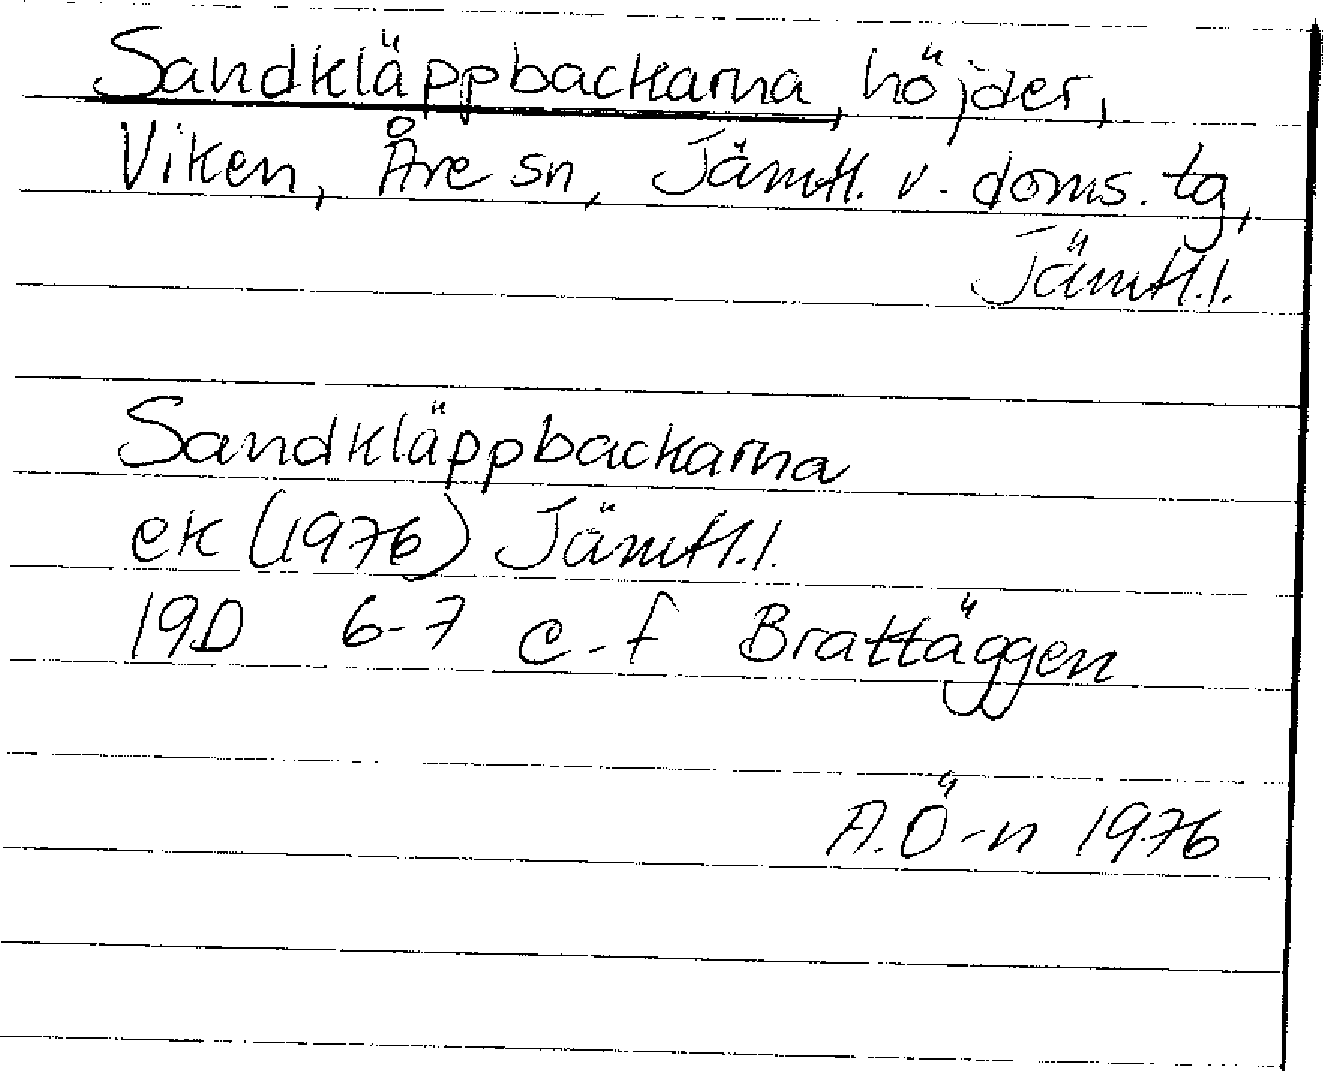 Sandkläppbackarna, höjder,
Viken, Åre sn, Jämtl. v. doms. tg,
Jämtl.l.
Sandkläppbackarna
ek (1976) Jämtl.l.
19D 6-7 c-f Brattäggen
A.Ö-n 1976